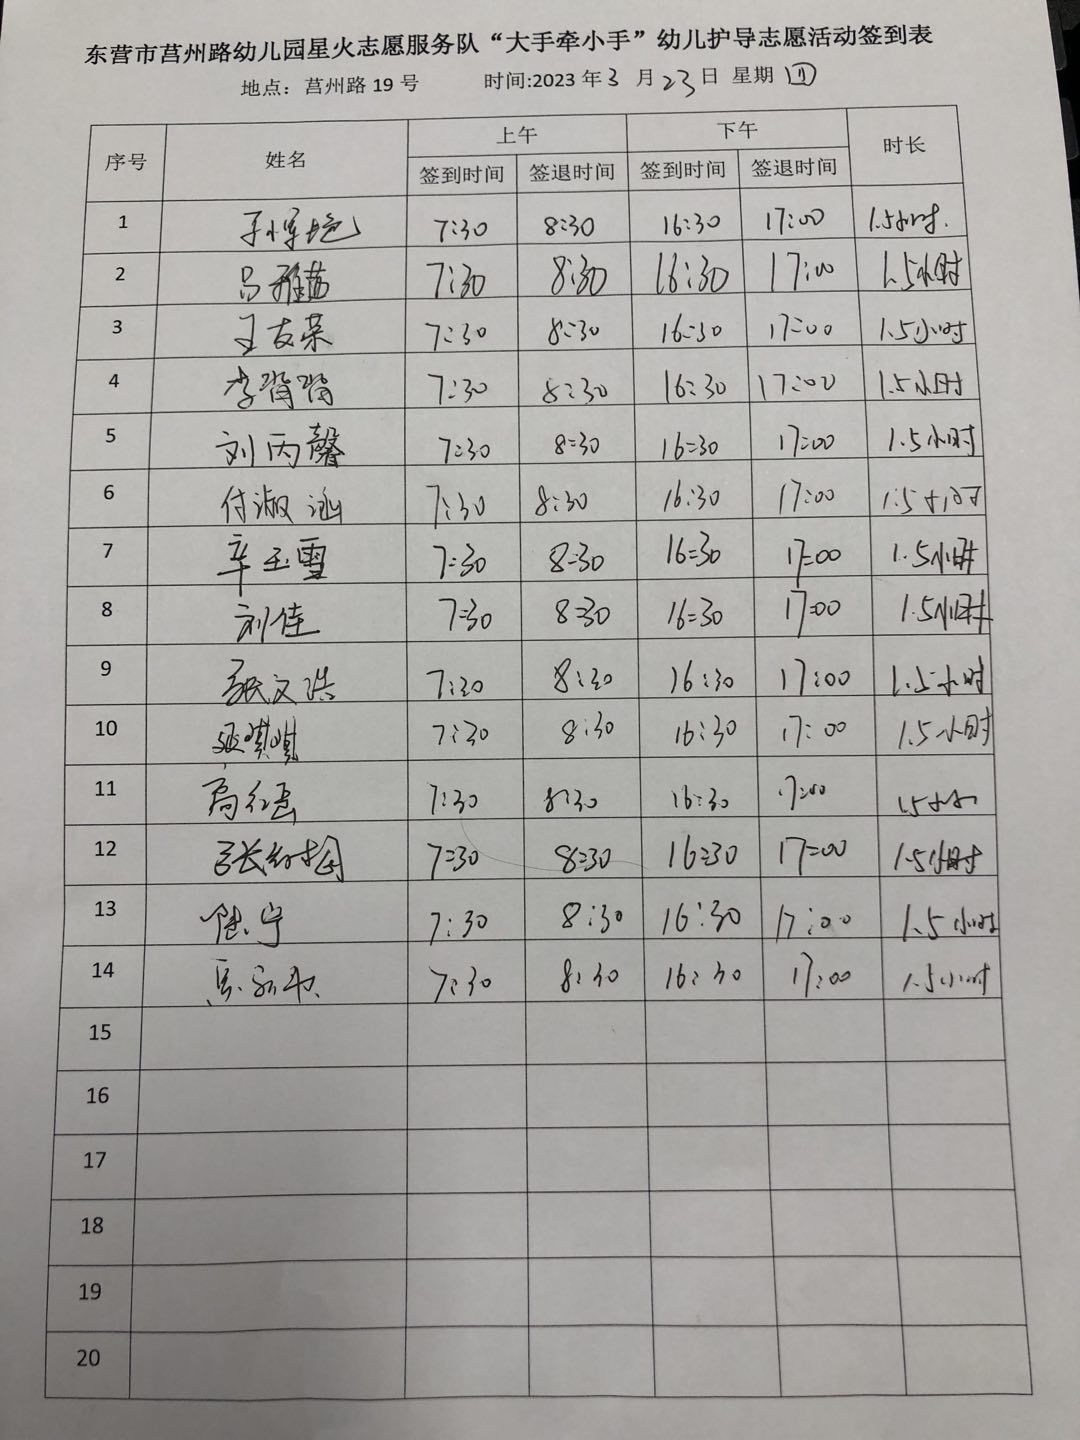 东营市莒州路幼儿园星火志愿服务队“大手牵小手”幼儿护导志愿活动签到表
地点：莒州路 19 号 时间:2023 年 3 月 23 日 星期 四
序号 姓名 上午 下午 时长
签到时间 签退时间 签到时间 签退时间
1 7:30 8:30 16:30 17:00 1.5小时.
2 马雅茹 7:30 8:30 16:30 17:00 1.5小时
3 王友荣 7:30 8:30 16:30 17:00 1.5小时
4 李 7:30 8:30 16:30 17:00 1.5小时
5 刘丙馨 7:30 8:30 16:30 17:00 1.5小时
6 付淑涵 7:30 8:30 16:30 17:00 1.5小时
7 辛玉雪 7:30 8:30 16:30 17:00 1.5小时
8 刘佳 7:30 8:30 16:30 17:00 1.5小时
9 张文浩 7:30 8:30 16:30 17:00 1.5小时
10 张琪琪 7:30 8:30 16:30 17:00 1.5小时
11 7:30 8:30 16:30 17:00 1.5小时
12 7:30 8:30 16:30 17:00 1.5小时
13 宁 7:30 8:30 16:30 17:00 1.5小时
14 7:30 8:30 16:30 17:00 1.5小时
15
16
17
18
19
20